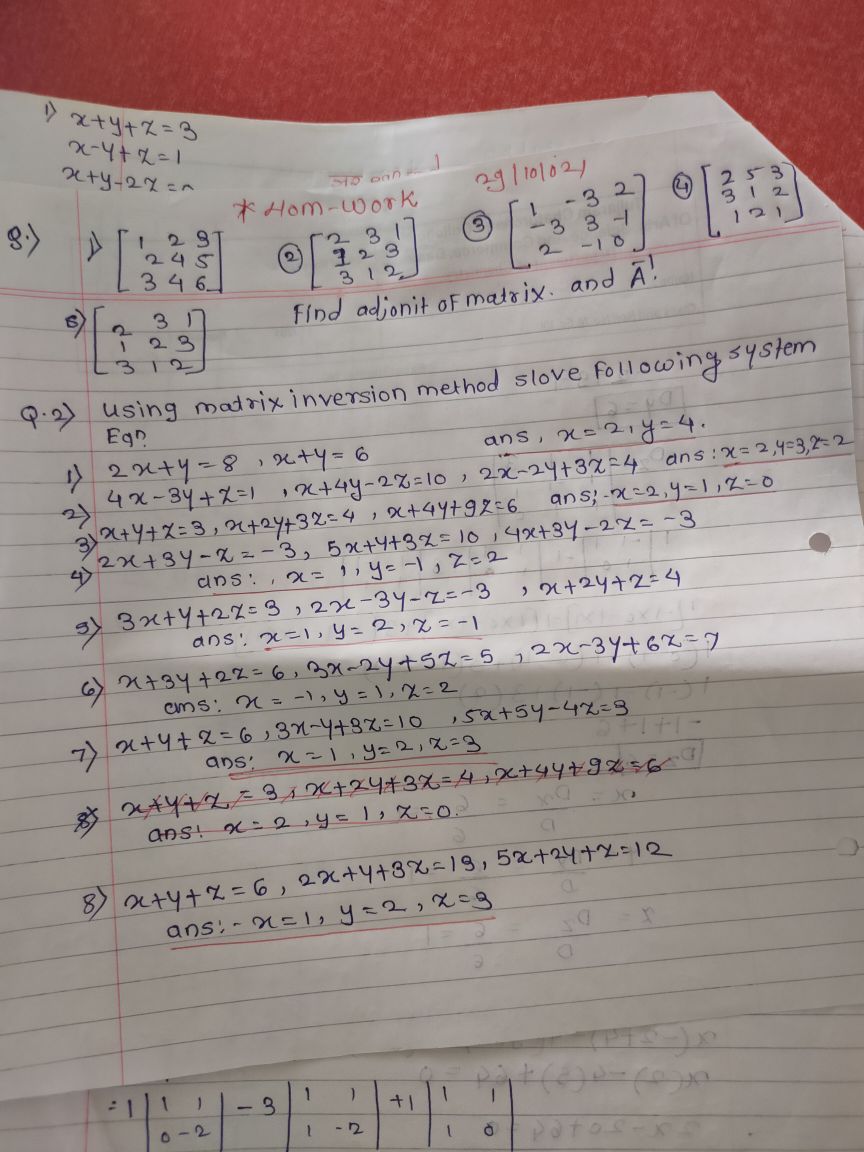 1) x+y+z=3
x-y+z=1
x+y-2z=0
* Hom-work 29/10/021
Q.) 1) [1 2 3 ② [2 3 1 ③ [1 -3 2 ④ [2 5 3
2 4 5 1 2 3 -3 3 -1 3 1 2
3 4 6] 3 1 2] 2 -1 0] 1 2 1]
Find adjonit of matrix. and A⁻!
5) [2 3 1
1 2 3
3 1 2]
Q.2) using matrix inversion method slove following system
Eqn
1) 2x+y=8 , x+y=6 ans, x=2, y=4.
2) 4x-3y+z=1 , x+4y-2z=10 , 2x-2y+3z=4 ans: x=2,y=3,z=2
3) x+y+z=3, x+2y+3z=4 , x+4y+9z=6 ans;-x=2,y=1,z=0
4) 2x+3y-z=-3, 5x+y+3z=10, 4x+3y-2z=-3
ans: , x=1, y=-1, z=2
5) 3x+y+2z=3 , 2x-3y-z=-3 , x+2y+z=4
ans: x=1, y=2, z=-1
6) x+3y+2z=6, 3x-2y+5z=5 , 2x-3y+6z=7
ams: x=-1, y=1, z=2
7) x+y+z=6, 3x-y+3z=10 , 5x+5y-4z=3
ans: x=1, y=2, z=3
8) x+y+z=3, x+2y+3z=4, x+4y+9z=6
ans! x=2, y=1, z=0.
8) x+y+z=6, 2x+y+3z=13, 5x+2y+z=12
ans:- x=1, y=2, z=3
=1 |1 1 | -3 |1 1 | +1 |1 1|
|0 -2| |1 -2| |1 0|